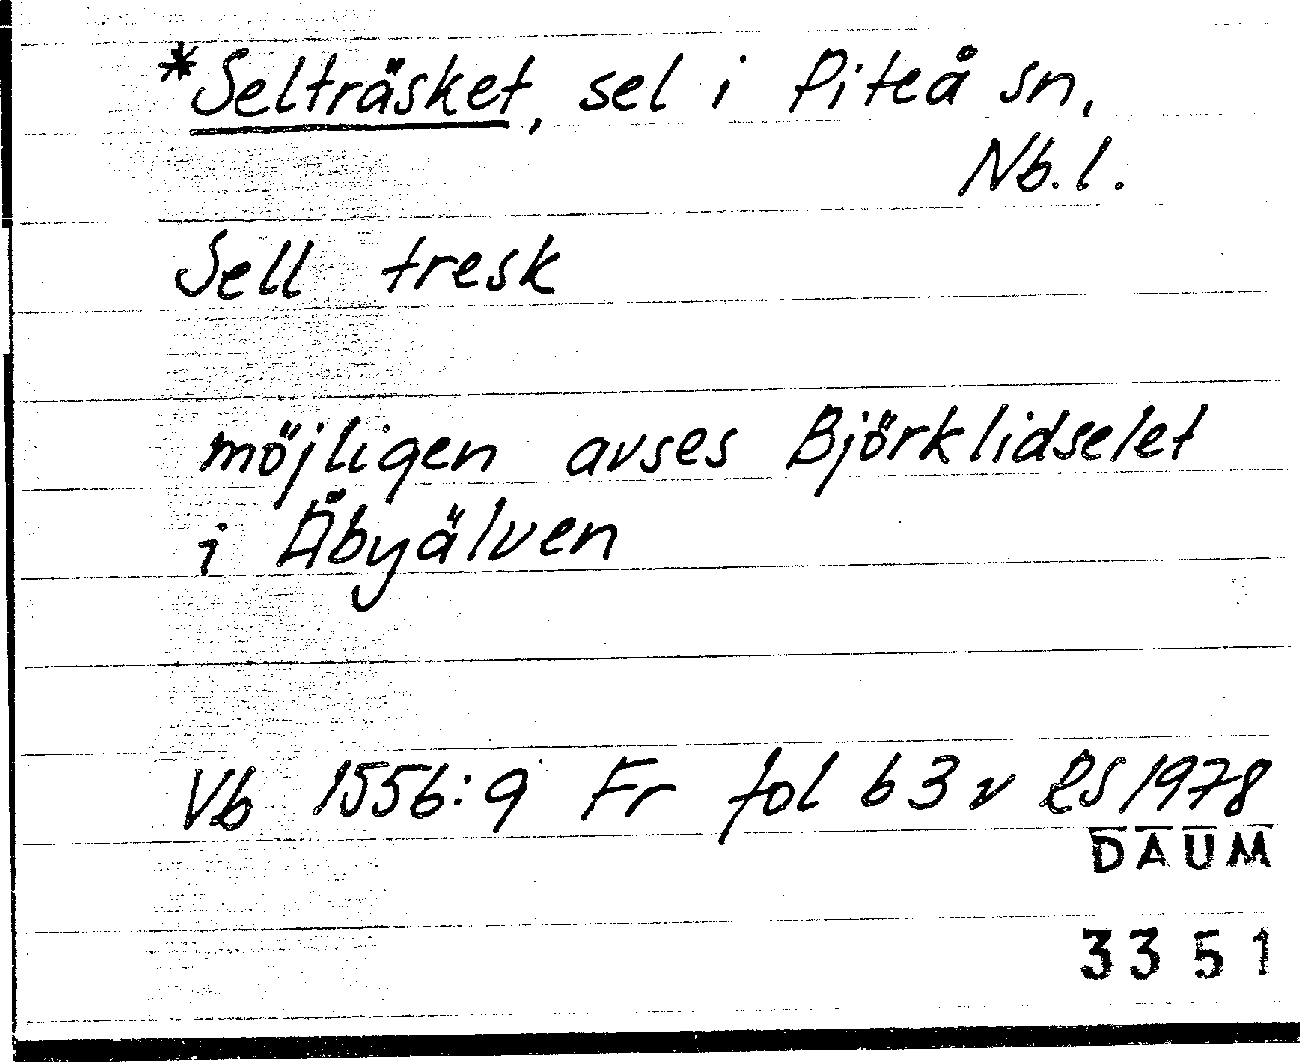 *Selträsket, sel i Piteå sn,
Nb.l.
Sell tresk
möjligen avses Björklidselet
i Åbyälven
Vb 1556:9 Fr fol 63 v RS 1978
DAUM
3351